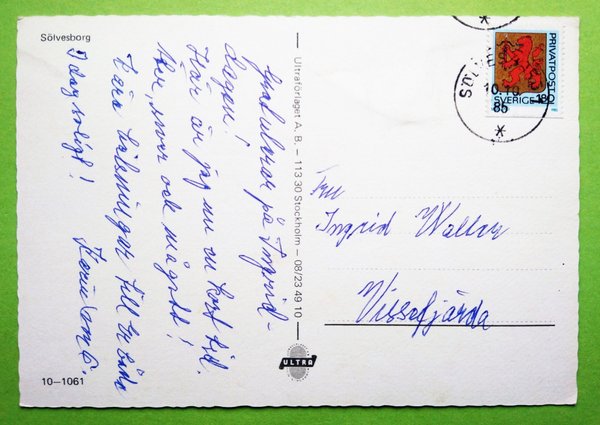 Sölvesborg
Gratulerar på Ingrid-
dagen!
Här är jag nu en kort tid.
äter, sover och mår gott!
Kära hälsningar till Er båda
Idag soligt!
10-1061
Ultraförlaget A. B. – 113 30 Stockholm – 08/23 49 10
ULTRA
PRIVATPOST
SVERIGE 180
10.10
85
Fru
Ingrid Waller
Vissefjärda